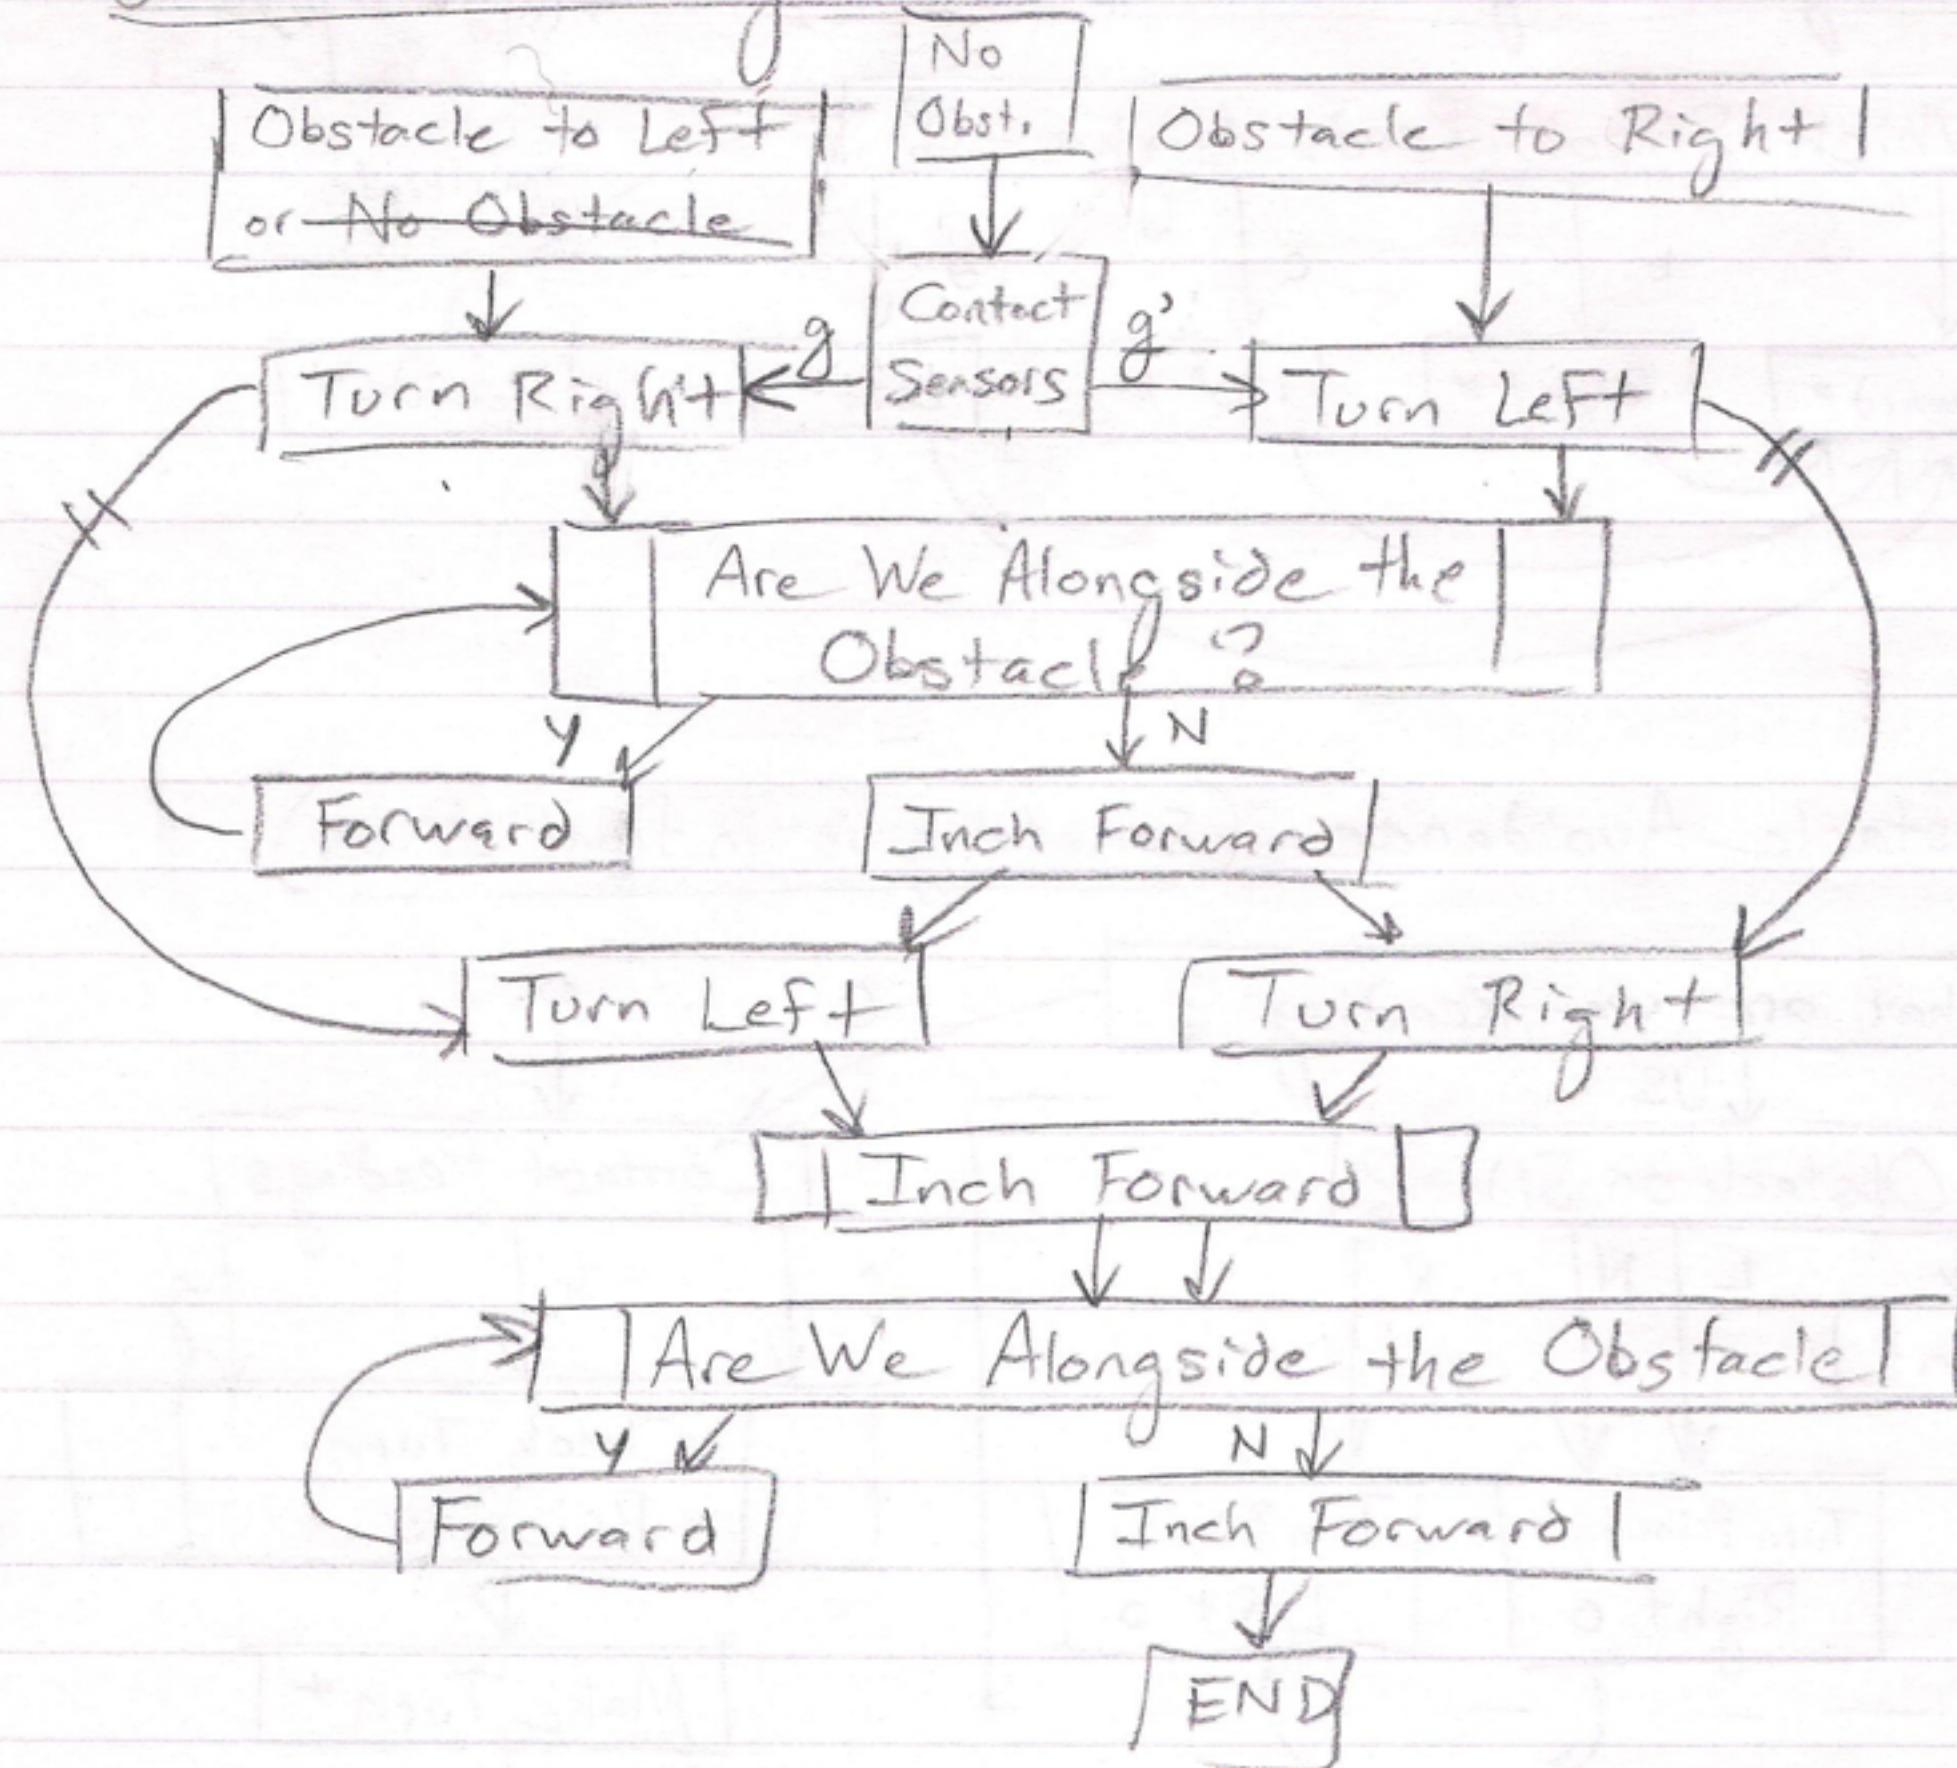 No
Obst.
Obstacle to Left
or No Obstacle
Obstacle to Right
Contact
Sensors
g
g'
Turn Right
Turn Left
Are We Alongside the
Obstacle ?
Y
N
Forward
Inch Forward
Turn Left
Turn Right
Inch Forward
Are We Alongside the Obstacle
Y
N
Forward
Inch Forward
END